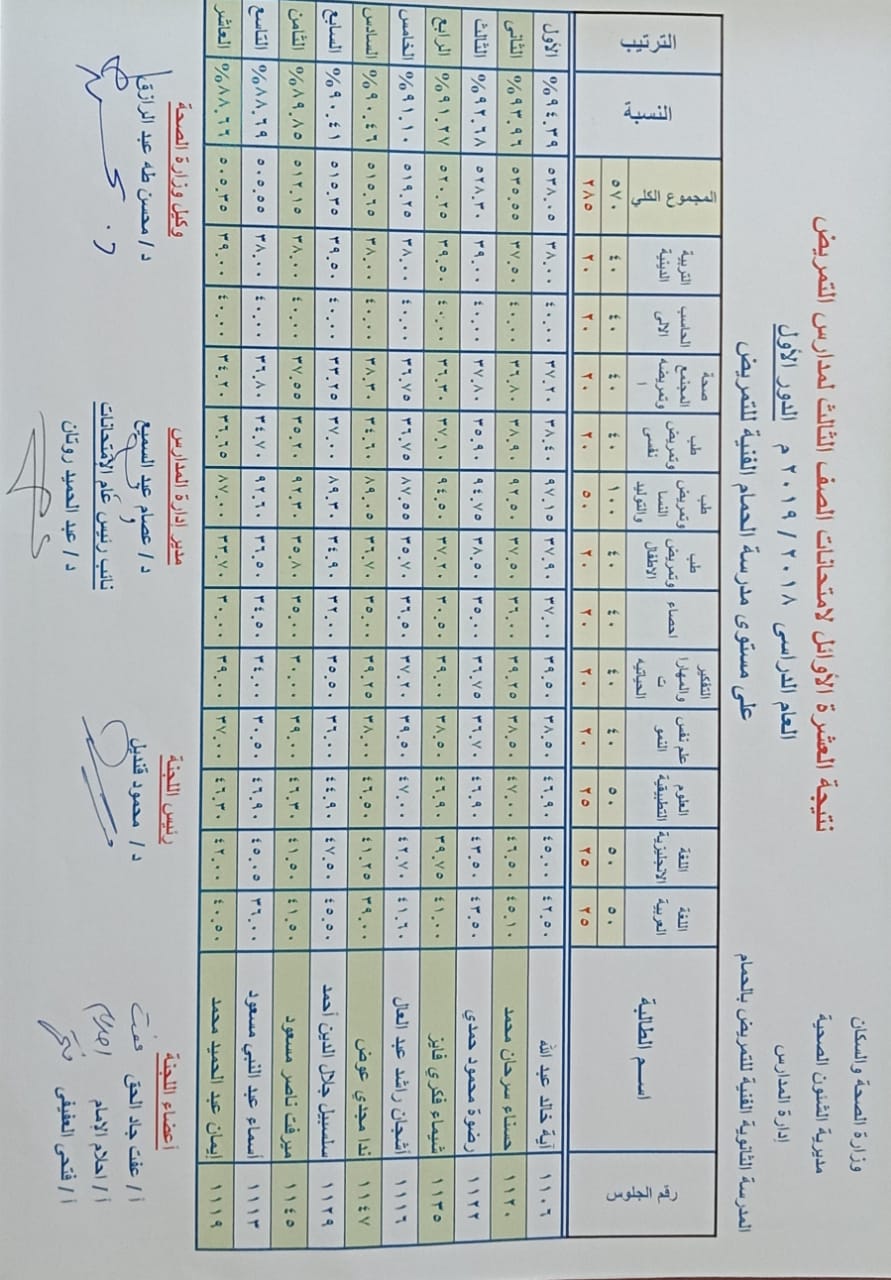 وزارة الصحة والسكان
مديرية الشئون الصحية
إدارة المدارس
المدرسة الثانوية الفنية للتمريض بالحمام
نتيجة العشرة الأوائل لامتحانات الصف الثالث لمدارس التمريض
العام الدراسى ٢٠١٨ / ٢٠١٩ م الدور الأول
على مستوى مدرسة الحمام الفنية للتمريض
رقم الجلوس اسم الطالبة اللغة العربية اللغة الانجليزية العلوم التطبيقية علم نفس النمو التفكير والمهارات الحياتيه احصاء طب وتمريض الاطفال طب وتمريض النسا والتوليد طب وتمريض نفسى صحة المجتمع وتمريضه ا الحاسب الالى التربية الدينية المجموع الكلي النسبة الترتيب
٥٠ ٥٠ ٥٠ ٤٠ ٤٠ ٤٠ ٤٠ ١٠٠ ٤٠ ٤٠ ٤٠ ٤٠ ٥٧٠
٢٥ ٢٥ ٢٥ ٢٠ ٢٠ ٢٠ ٢٠ ٥٠ ٢٠ ٢٠ ٢٠ ٢٠ ٢٨٥
١١٠٦ آية خالد عبد الله ٤٢.٥٠ ٤٥.٠٠ ٤٦.٩٠ ٣٨.٥٠ ٣٩.٥٠ ٣٧.٠٠ ٣٧.٩٠ ٩٧.١٥ ٣٨.٤٠ ٣٧.٢٠ ٤٠.٠٠ ٣٨.٠٠ ٥٣٨.٠٥ %٩٤.٣٩ الأول
١١٢٠ حسناء سرحان محمد ٤٥.١٠ ٤٦.٥٠ ٤٧.٠٠ ٣٨.٥٠ ٣٩.٢٥ ٣٦.٠٠ ٣٧.٥٠ ٩٢.٥٠ ٣٨.٩٠ ٣٦.٨٠ ٤٠.٠٠ ٣٧.٥٠ ٥٣٥.٥٥ %٩٣.٩٦ الثانى
١١٢٢ رضوة محمود حمدي ٤٣.٥٠ ٤٣.٥٠ ٤٦.٩٠ ٣٦.٧٠ ٣٦.٧٥ ٣٥.٠٠ ٣٨.٥٠ ٩٤.٧٥ ٣٥.٩٠ ٣٧.٨٠ ٤٠.٠٠ ٣٩.٠٠ ٥٢٨.٣٠ %٩٢.٦٨ الثالث
١١٣٥ شيماء فكري فايز ٤١.٠٠ ٣٩.٧٥ ٤٦.٩٠ ٣٨.٥٠ ٣٩.٠٠ ٣٠.٥٠ ٣٧.٢٠ ٩٤.٥٠ ٣٧.١٠ ٣٦.٣٠ ٤٠.٠٠ ٣٩.٥٠ ٥٢٠.٢٥ %٩١.٢٧ الرابع
١١١٦ أشجان راشد عبد العال ٤١.٦٠ ٤٢.٧٠ ٤٧.٠٠ ٣٩.٥٠ ٣٧.٢٠ ٣٦.٥٠ ٣٥.٧٠ ٨٧.٥٥ ٣٦.٧٥ ٣٦.٧٥ ٤٠.٠٠ ٣٨.٠٠ ٥١٩.٢٥ %٩١.١٠ الخامس
١١٤٧ ندا مجدي عوض ٣٩.٠٠ ٤١.٢٥ ٤٦.٥٠ ٣٨.٠٠ ٣٩.٢٥ ٣٥.٠٠ ٣٦.٧٠ ٨٩.٠٥ ٣٤.٦٠ ٣٨.٣٠ ٤٠.٠٠ ٣٨.٠٠ ٥١٥.٦٥ %٩٠.٤٦ السادس
١١٢٩ سلسبيل جلال الدين أحمد ٤٥.٥٠ ٤٧.٥٠ ٤٤.٩٠ ٣٦.٠٠ ٣٥.٥٠ ٣٢.٠٠ ٣٤.٩٠ ٨٩.٣٠ ٣٧.٠٠ ٣٣.٢٥ ٤٠.٠٠ ٣٩.٥٠ ٥١٥.٣٥ %٩٠.٤١ السابع
١١٤٥ ميرفت ناصر مسعود ٤١.٥٠ ٤١.٥٠ ٤٦.٣٠ ٣٩.٠٠ ٣٠.٠٠ ٣٥.٠٠ ٣٥.٨٠ ٩٢.٣٠ ٣٥.٢٠ ٣٧.٥٥ ٤٠.٠٠ ٣٨.٠٠ ٥١٢.١٥ %٨٩.٨٥ الثامن
١١١٣ أسماء عبد النبي مسعود ٣٦.٠٠ ٤٥.٠٥ ٤٦.٩٠ ٣٠.٥٠ ٣٤.٠٠ ٣٤.٥٠ ٣٦.٥٠ ٩٢.٦٠ ٣٤.٧٠ ٣٦.٨٠ ٤٠.٠٠ ٣٨.٠٠ ٥٠٥.٥٥ %٨٨.٦٩ التاسع
١١١٩ إيمان عبد الحميد محمد ٤٠.٥٠ ٤٢.٠٠ ٤٦.٣٠ ٣٧.٠٠ ٣٩.٠٠ ٣٠.٠٠ ٣٣.٧٠ ٨٧.٠٠ ٣٦.٦٥ ٣٤.٢٠ ٤٠.٠٠ ٣٩.٠٠ ٥٠٥.٣٥ %٨٨.٦٦ العاشر
أعضاء اللجنة رئيس اللجنة مدير إدارة المدارس وكيل وزارة الصحة
أ/ عفت جاد الحق د/ محمود قنديل د/ عصام عبد السميع د/ محسن طه عبد الرازق
أ/ احلام الإمام نائب رئيس عام الإمتحانات
أ/ فتحى العفيفى د/ عبد الحميد روتان